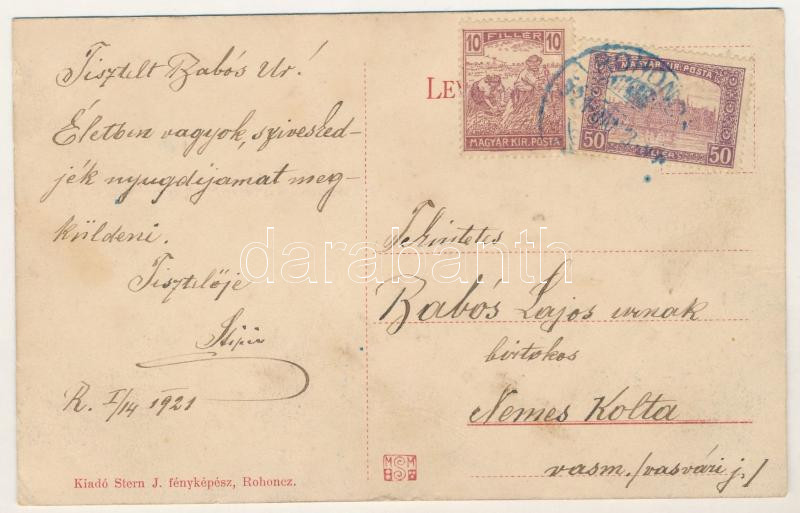 Tisztelt Babós Ur!
Életben vagyok, sziveskéd-
jék nyugdíjamat meg-
küldeni.
Tisztelője
R. I/14 1921
Kiadó Stern J. fényképész, Rohoncz.
LEV
10 FILLÉR 10
MAGYAR KIR. POSTA
MAGYAR KIR. POSTA
50 FILLÉR 50
Tekintetes
Babós Lajos urnak
birtokos
Nemes Kolta
vasm. /vasvári j./
MSM
darabanth